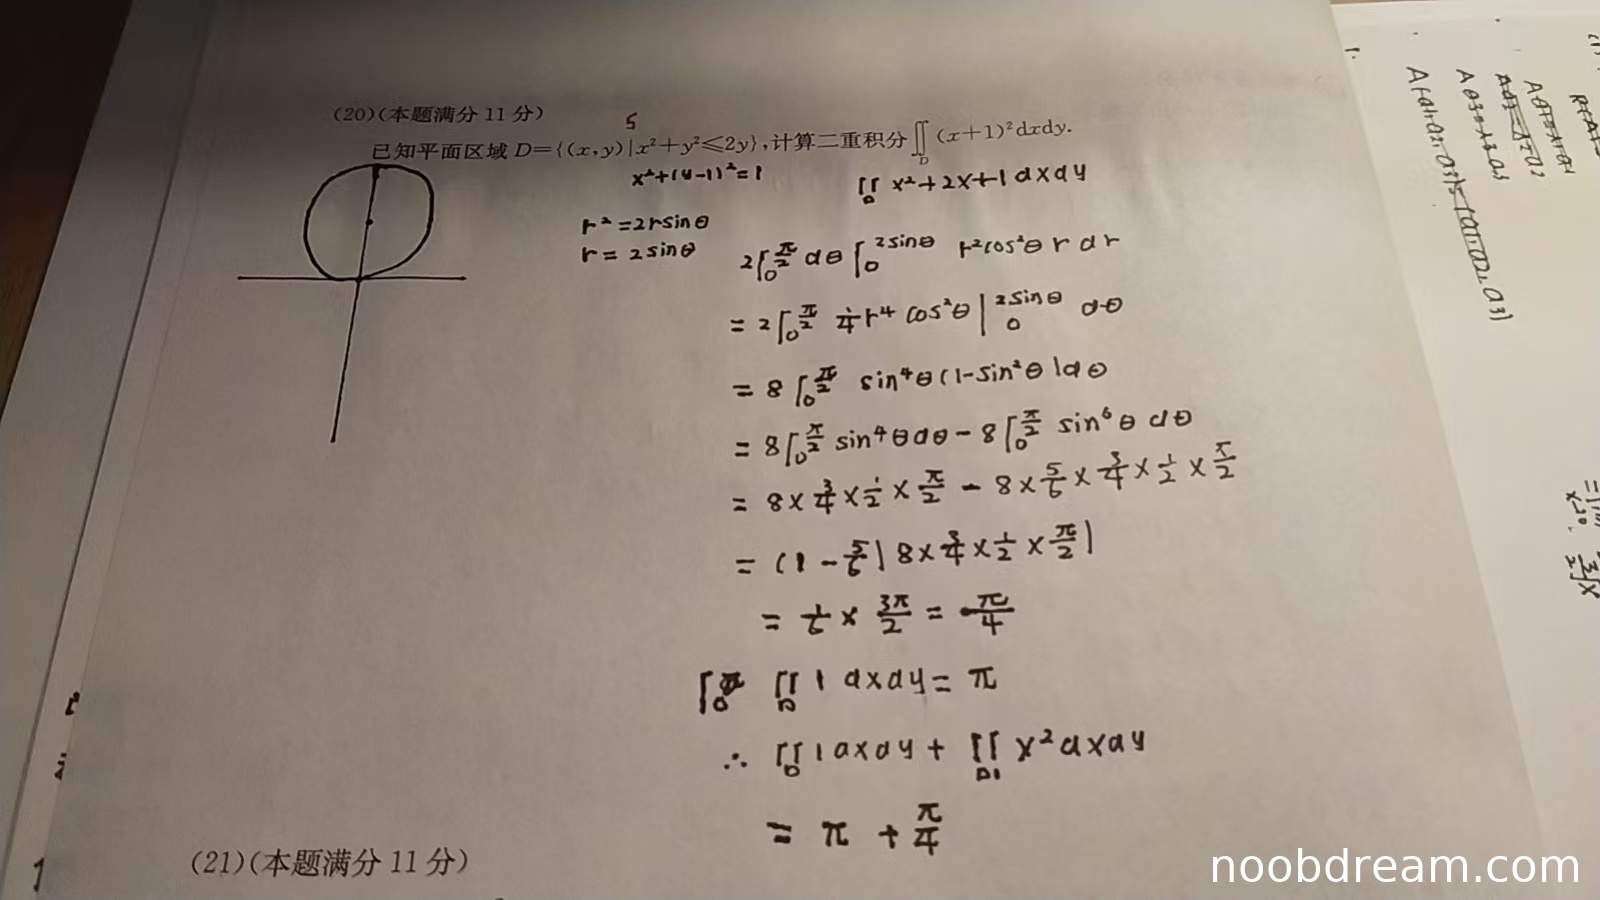 (20)(本题满分 11 分)
5
已知平面区域 D={(x,y)|x²+y²≤2y},计算二重积分∬_D (x+1)²dxdy.
x²+(y-1)²=1
∬_D x²+2x+1 dxdy
r²=2rsinθ
r=2sinθ
2∫_0^{π/2} dθ ∫_0^{2sinθ} r²cos²θ r dr
= 2∫_0^{π/2} 1/4 r⁴ cos²θ |_0^{2sinθ} dθ
= 8∫_0^{π/2} sin⁴θ(1-sin²θ)dθ
= 8∫_0^{π/2} sin⁴θdθ - 8∫_0^{π/2} sin⁶θ dθ
= 8×3/4×1/2×π/2 - 8×5/6×3/4×1/2×π/2
= (1-5/6)8×3/4×1/2×π/2)
= 1/6 × 3π/2 = π/4
∬_D 1 dxdy = π
∴ ∬_D 1dxdy + ∬_{D1} x²dxdy
= π + π/4
(21)(本题满分 11 分)
noobdream.com